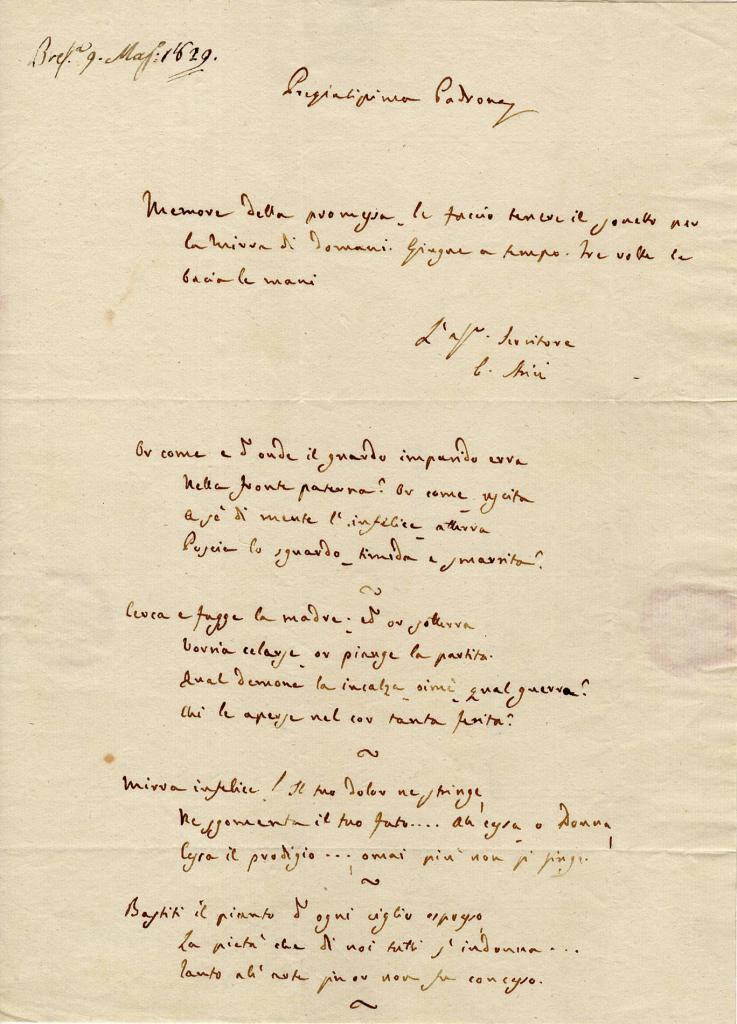 Bres.ª 9. Mag: 1829.
Pregiatissima Padrona
Memore della promessa, le faccio tenere il sonetto per
la Mirra di domani. Giugne a tempo. Tre volte le
bacia le mani
L'aff.º Servitore
C. Arici
Or come e d'onde il guardo impaurido erra
Nella fronte paterna? Or come uscita
a sè di mente l'infelice atterra
Poscia lo sguardo, timida e smarrita?
~
Cerca e fugge la madre; ed or sotterra
Vorria celarse, or piange la partita.
Qual demone la incalza, oimè, qual guerra?
Chi le aperse nel cor tanta ferita?
~
Mirra infelice! Il tuo dolor ne stringe,
Ne sgomenta il tuo fato.... Ah! cessa o Donna,
Cessa il prodigio... omai più non si finge!
~
Bastiti il pianto d'ogni ciglio espresso,
La pietà che di noi tutti s'indonna...
Tanto all'arte finor non fu concesso.
~